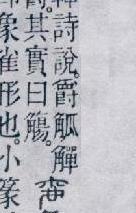 詩說。爵觚觶
爵。其實曰觴。
象雀形也。小篆